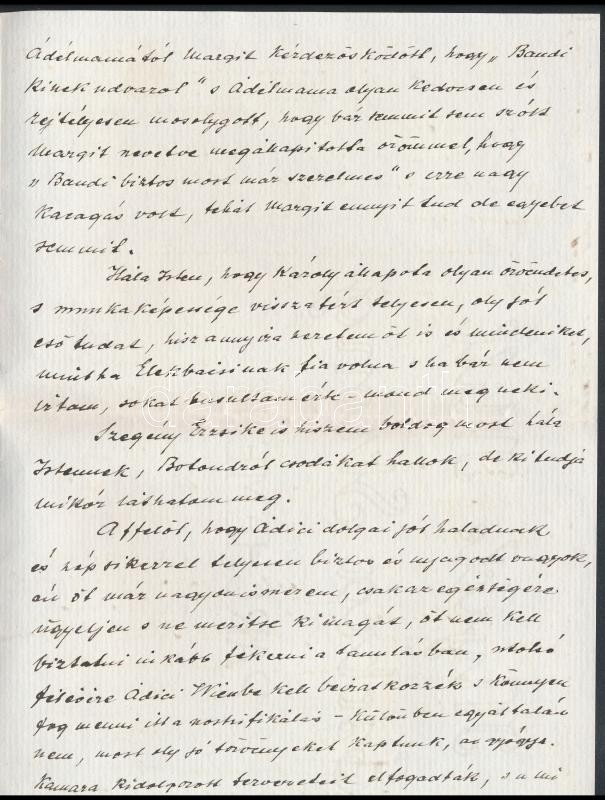 Ádélmamától Margit kérdezősködött, hogy „Bandi
kinek udvarol" s Ádélmama olyan kedvesen és
rejtélyesen mosolygott, hogy bár semmit sem szólt
Margit nevetve megállapitotta örömmel, hogy
„Bandi biztos most már szerelmes" s erre nagy
kacagás volt, tehát Margit ennyit tud de egyebet
semmit.
Hála Isten, hogy Károly állapota olyan örvendetes,
s munkaképessége visszatért teljesen, oly jól
eső tudat, hisz annyira szeretem őt is és mindeniket,
mintha Elekbácsinak fia volna s ha bár nem
irtam, sokat busultam érte - mond meg neki.
Szegény Erzsike is hiszem boldog most hála
Istennek, Botondról csodákat hallok, de ki tudja
mikór láthatom meg.
A ffelől, hogy Ádici dolgai jól haladnak
és nép sikerrel teljesen biztos és nyugodt vagyok,
én őt már nagyon ismerem, csak az egészségére
ügyeljen s ne meritse ki magát, őt nem kell
biztatni inkább fékezni a tanulásban, utolsó
félévire Ádici Wienbe kell beiratkozzék s könnyen
fog menni itt a nostrifikálás - különben egyáltalán
nem, most oly jó törvényeket kaptunk, az
kamara kidolgozott tervezeteit elfogadták, s a mi